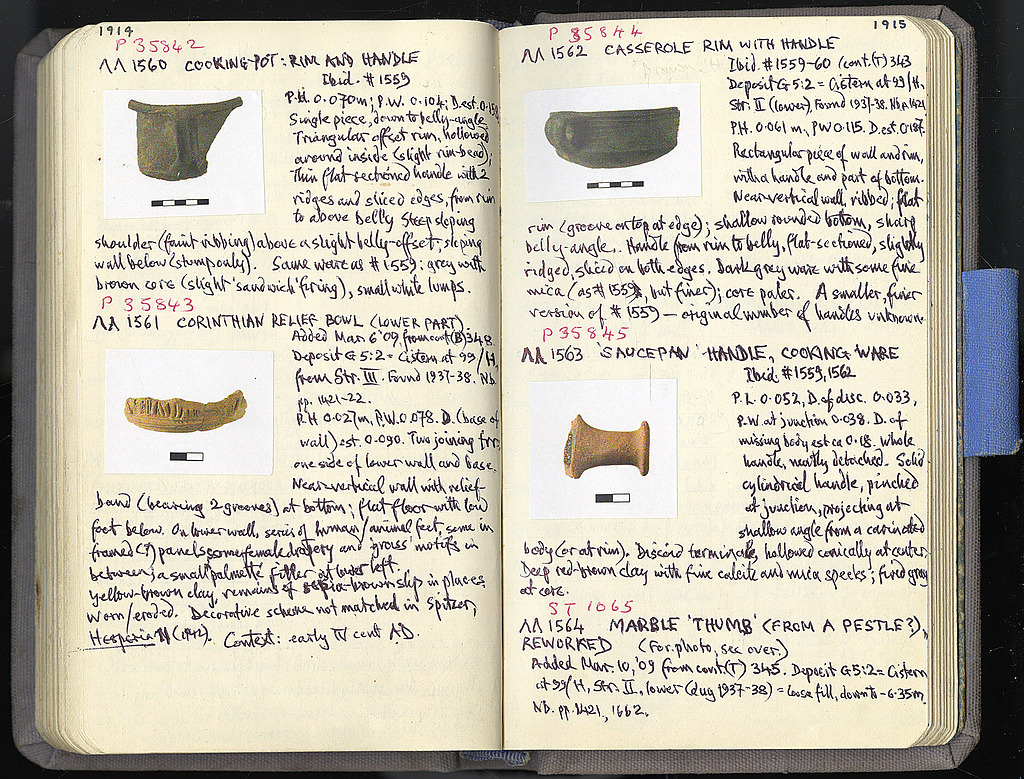 1914
P 35842
ΛΛ 1560 COOKING-POT: RIM AND HANDLE
Ibid. #1559
P.H. 0.070m; P.W. 0.104; D.est. 0.158
Single piece, down to belly-angle.
Triangular offset rim, hollowed
around inside (slight rim-bead);
thin flat-sectioned handle with 2
ridges and sliced edges, from rim
to above belly. Steep sloping
shoulder (faint ribbing) above a slight belly-offset; sloping
wall below (stump only). Same ware as #1559: grey with
brown core (slight 'sandwich' firing), small white lumps.
P 35843
ΛΛ 1561 CORINTHIAN RELIEF BOWL (LOWER PART)
Added Mar. 6 '09 from cont. (B) 348.
Deposit G 5:2 = Cistern at 99/H,
from Str. III. Found 1937-38. Nb.
pp. 1421-22.
P.H. 0.027m, P.W. 0.078. D. (base of
wall) est. 0.090. Two joining frr,
one side of lower wall and base.
Near-vertical wall with relief
band (bearing 2 grooves) at bottom; flat floor with low
foot below. On lower wall, series of human/animal feet, some in
framed (?) panels, some female drapery and 'grass' motifs in
between; a small palmette filler at lower left.
Yellow-brown clay, remains of sepia-brown slip in places
worn/eroded. Decorative scheme not matched in Spitzer,
Hesperia 11 (1942). Context: early IV cent A.D.
1915
P 35844
ΛΛ 1562 CASSEROLE RIM WITH HANDLE
Ibid. #1559-60 (cont. (T) 343
Deposit G 5:2 = Cistern at 99/H,
Str. II (lower). Found 1937-38. Nb.p.1421
P.H. 0.061 m, P.W. 0.115. D. est. 0.187.
Rectangular piece of wall and rim,
with a handle and part of bottom.
Near-vertical wall, ribbed; flat
rim (groove on top at edge); shallow rounded bottom, sharp
belly-angle. Handle from rim to belly, flat-sectioned, slightly
ridged, sliced on both edges. Dark grey ware with some fine
mica (as #1559, but finer); core paler. A smaller, finer
version of #1559 – original number of handles unknown.
P 35845
ΛΛ 1563 'SAUCEPAN' HANDLE, COOKING WARE
Ibid. #1559, 1562
P.L. 0.052, D. of disc. 0.033,
P.W. at junction 0.038. D. of
missing body est ca 0.18. Whole
handle, neatly detached. Solid
cylindrical handle, pinched
at junction, projecting at
shallow angle from a carinated
body (or at rim). Discoid terminal, hollowed conically at center.
Deep red-brown clay with fine calcite and mica specks; fired gray
at core.
ST 1065
ΛΛ 1564 MARBLE 'THUMB' (FROM A PESTLE?),
REWORKED (For photo, see over.)
Added Mar. 10, '09 (from cont. (T) 345. Deposit G 5:2 = Cistern
at 99/H, Str. II, lower (dug 1937-38) = loose fill, down to -6.35m.
Nb. pp. 1421, 1662.